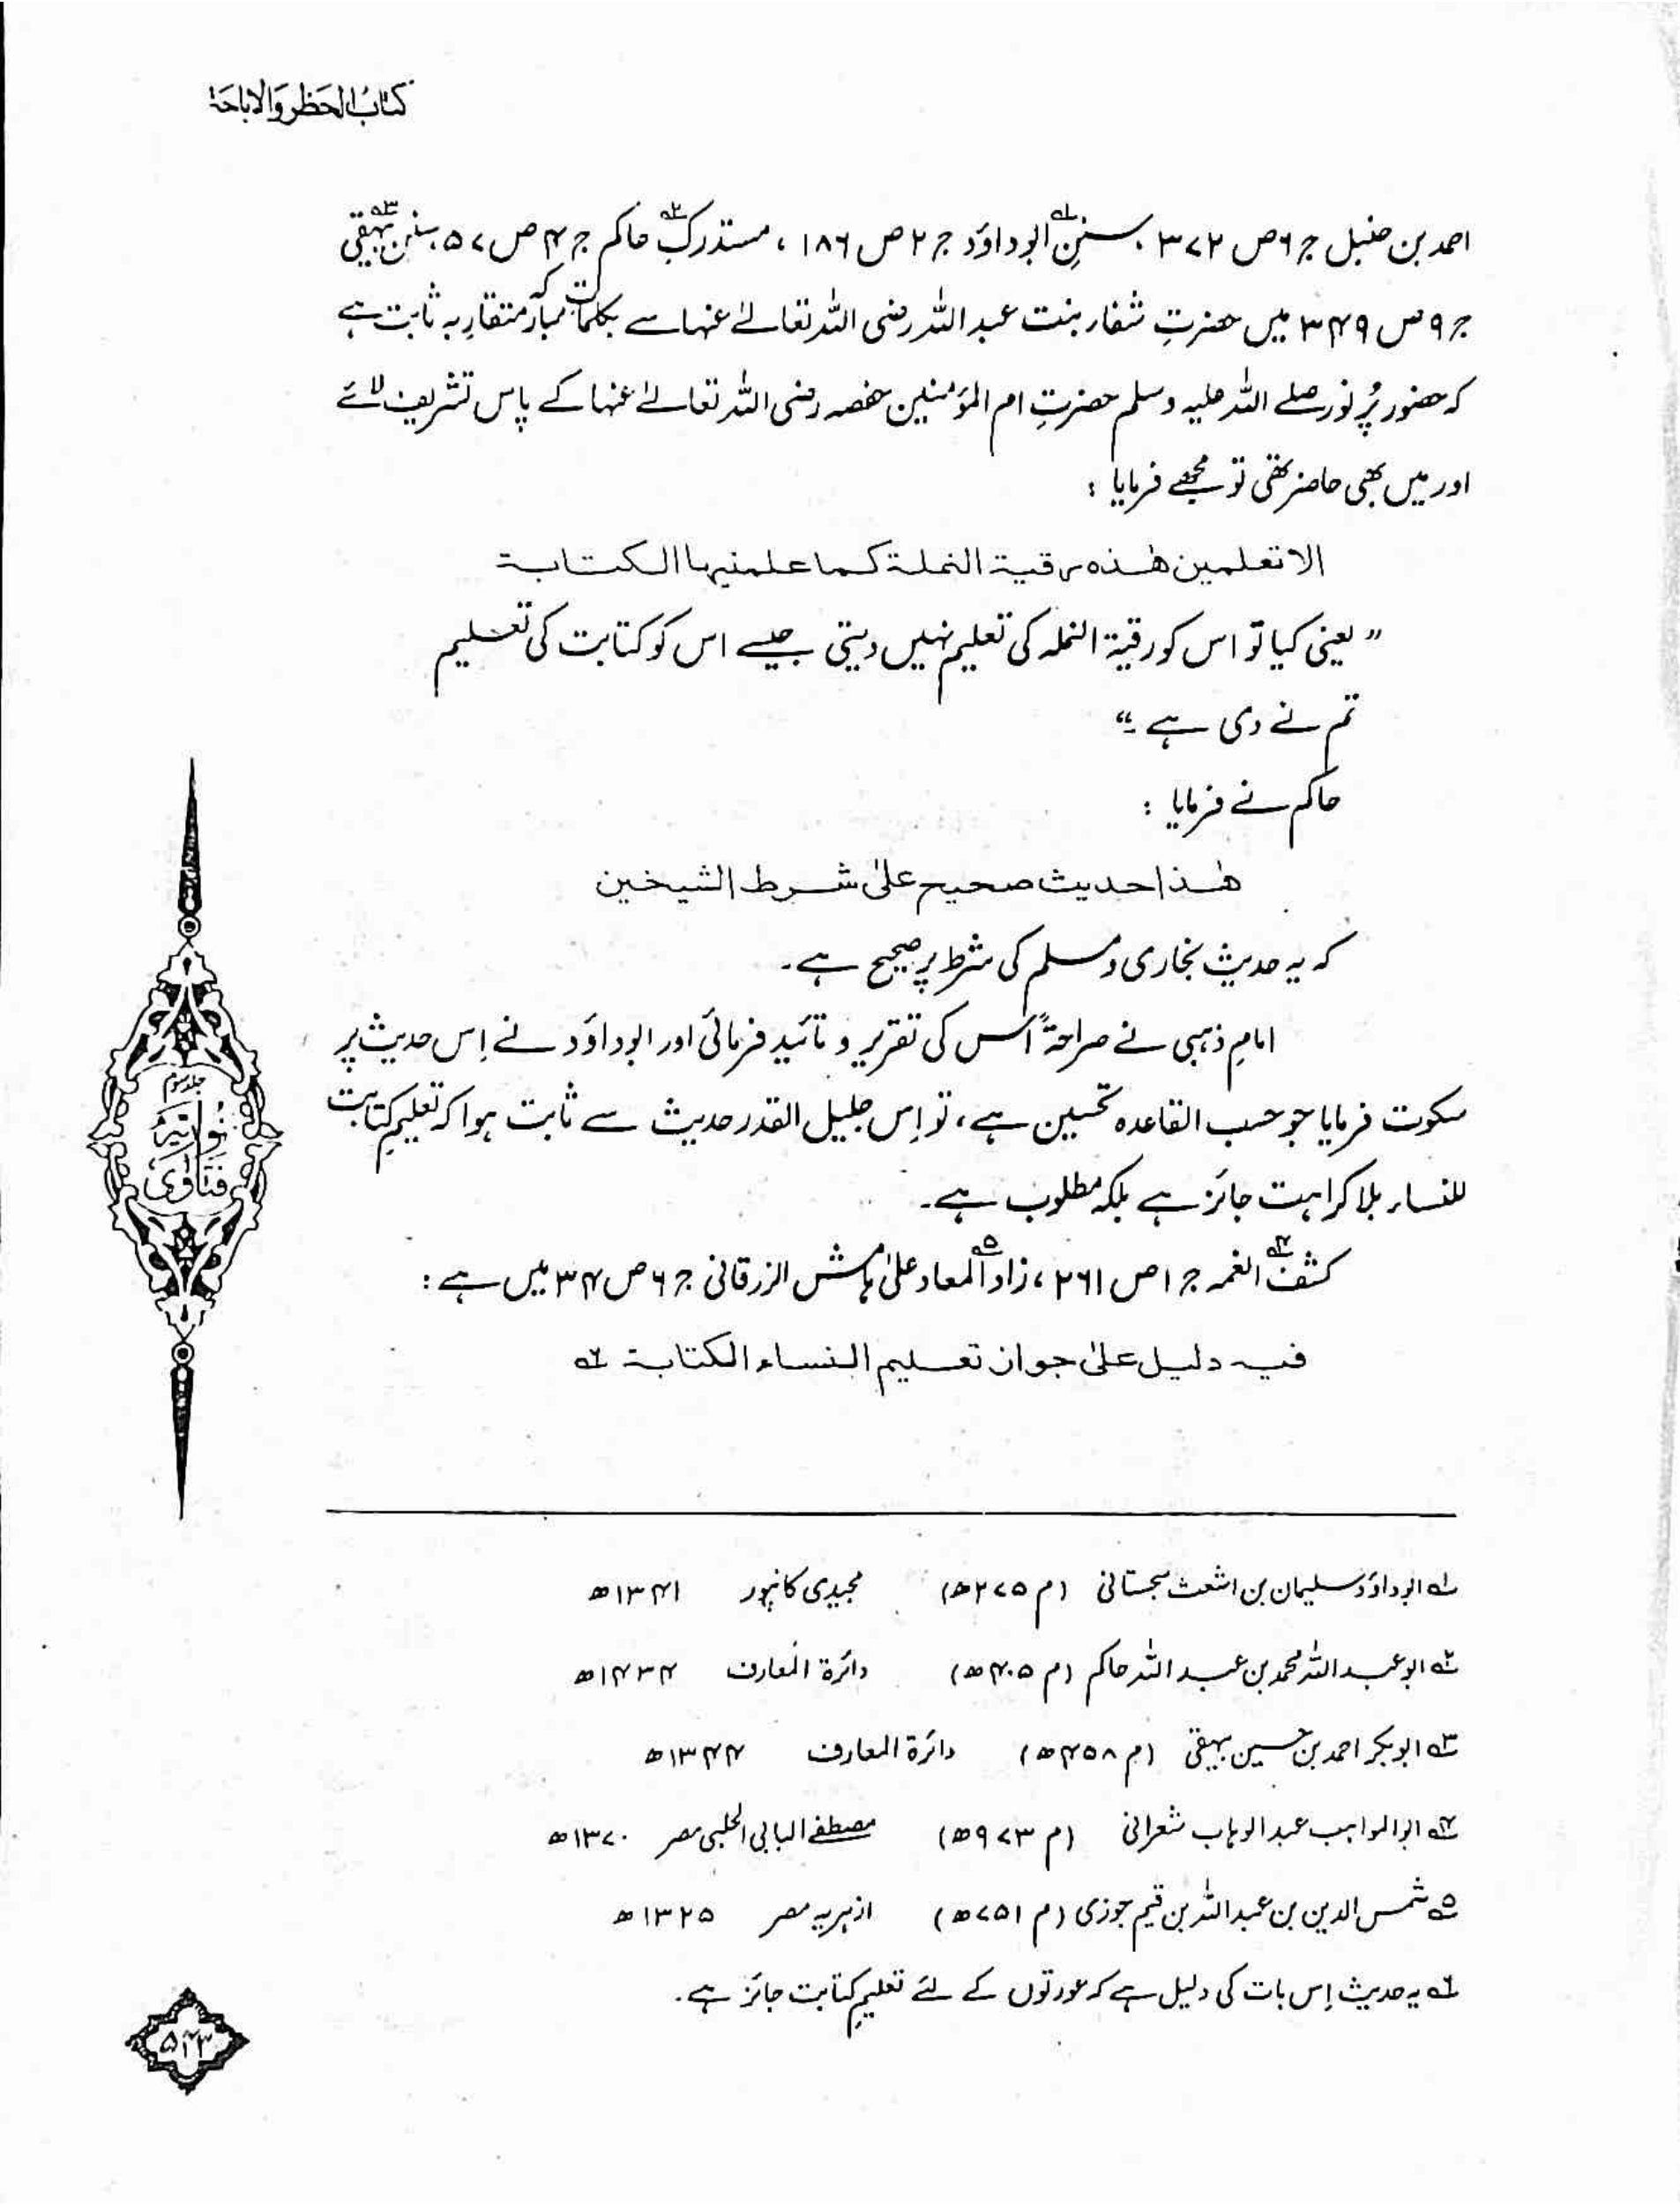 کتاب الحظر والاباحۃ
احمد بن حنبل ج ۶ ص ۳۷۲ ، سنن۱؎ ابوداؤد ج ۲ ص ۱۸۶ ، مستدرک۲؎ حاکم ج ۴ ص ۵۷ ، سنن۳؎ بیہقی
ج ۹ ص ۳۴۹ میں حضرتِ شفاء بنت عبد اللہ رضی اللہ تعالےٰ عنہا سے بکلماتِ مبارکہ متقاربہ ثابت ہے
کہ حضور پُر نور صلے اللہ علیہ وسلم حضرتِ ام المؤمنین حفصہ رضی اللہ تعالےٰ عنہا کے پاس تشریف لائے
اور میں بھی حاضر تھی تو مجھے فرمایا :
الا تعلمین ھٰذہ رقیۃ النملۃ کما علمتیہا الکتابۃ
” یعنی کیا تو اس کو رقیۃ النملہ کی تعلیم نہیں دیتی جیسے اس کو کتابت کی تعلیم
تم نے دی ہے ۔“
حاکم نے فرمایا :
ھٰذا حدیث صحیح علیٰ شرط الشیخین
کہ یہ حدیث بخاری و مسلم کی شرط پر صحیح ہے ۔
امامِ ذہبی نے صراحۃً اس کی تقریر و تائید فرمائی اور ابوداؤد نے اِس حدیث پر
سکوت فرمایا جو حسب القاعدہ تحسین ہے ، تو اِس جلیل القدر حدیث سے ثابت ہوا کہ تعلیمِ کتابت
للنساء بلا کراہت جائز ہے بلکہ مطلوب ہے ۔
کشف۴؎ الغمہ ج ۱ ص ۲۶۱ ، زاد۵؎ المعاد علیٰ ہامش الزرقانی ج ۶ ص ۳۴ میں ہے :
فیہ دلیل علیٰ جواز تعلیم النساء الکتابۃ ۶؎
جلد سوم
فتاویٰ نوریہ
۱؎ ابوداؤد سلیمان بن اشعث سجستانی (م ۲۷۵ھ) مجیدی کانپور ۱۳۴۱ھ
۲؎ ابو عبد اللہ محمد بن عبد اللہ حاکم (م ۴۰۵ھ) دائرۃ المعارف ۱۴۳۴ھ
۳؎ ابو بکر احمد بن حسین بیہقی (م ۴۵۸ھ) دائرۃ المعارف ۱۳۴۴ھ
۴؎ ابو المواہب عبد الوہاب شعرانی (م ۹۷۳ھ) مصطفے البابی الحلبی مصر ۱۳۷۰ھ
۵؎ شمس الدین بن عبد اللہ بن قیم جوزی (م ۷۵۱ھ) ازہریہ مصر ۱۳۲۵ھ
۶؎ یہ حدیث اِس بات کی دلیل ہے کہ عورتوں کے لئے تعلیمِ کتابت جائز ہے ۔
۵۴۳